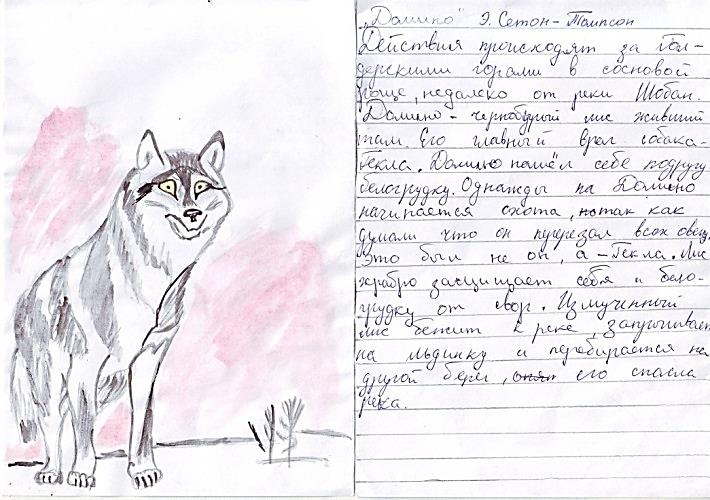 „Домино" Э. Сетон-Томпсон
Действия происходят за Гол-
дерскими горами в сосновой
роще, недалеко от реки Шобан.
Домино - чернобурый лис живший
там. Его главный враг собака-
Гекла. Домино нашёл себе подругу
белогрудку. Однажды на Домино
начинается охота, так как
думали что он перерезал всех овец,
это был не он, а - Гекла. Лис
храбро засщищает себя и бело-
грудку от свор. Измученный
лис бежит к реке, запрыгивает
на льдинку и перебирается на
другой берег, его спасла
река.